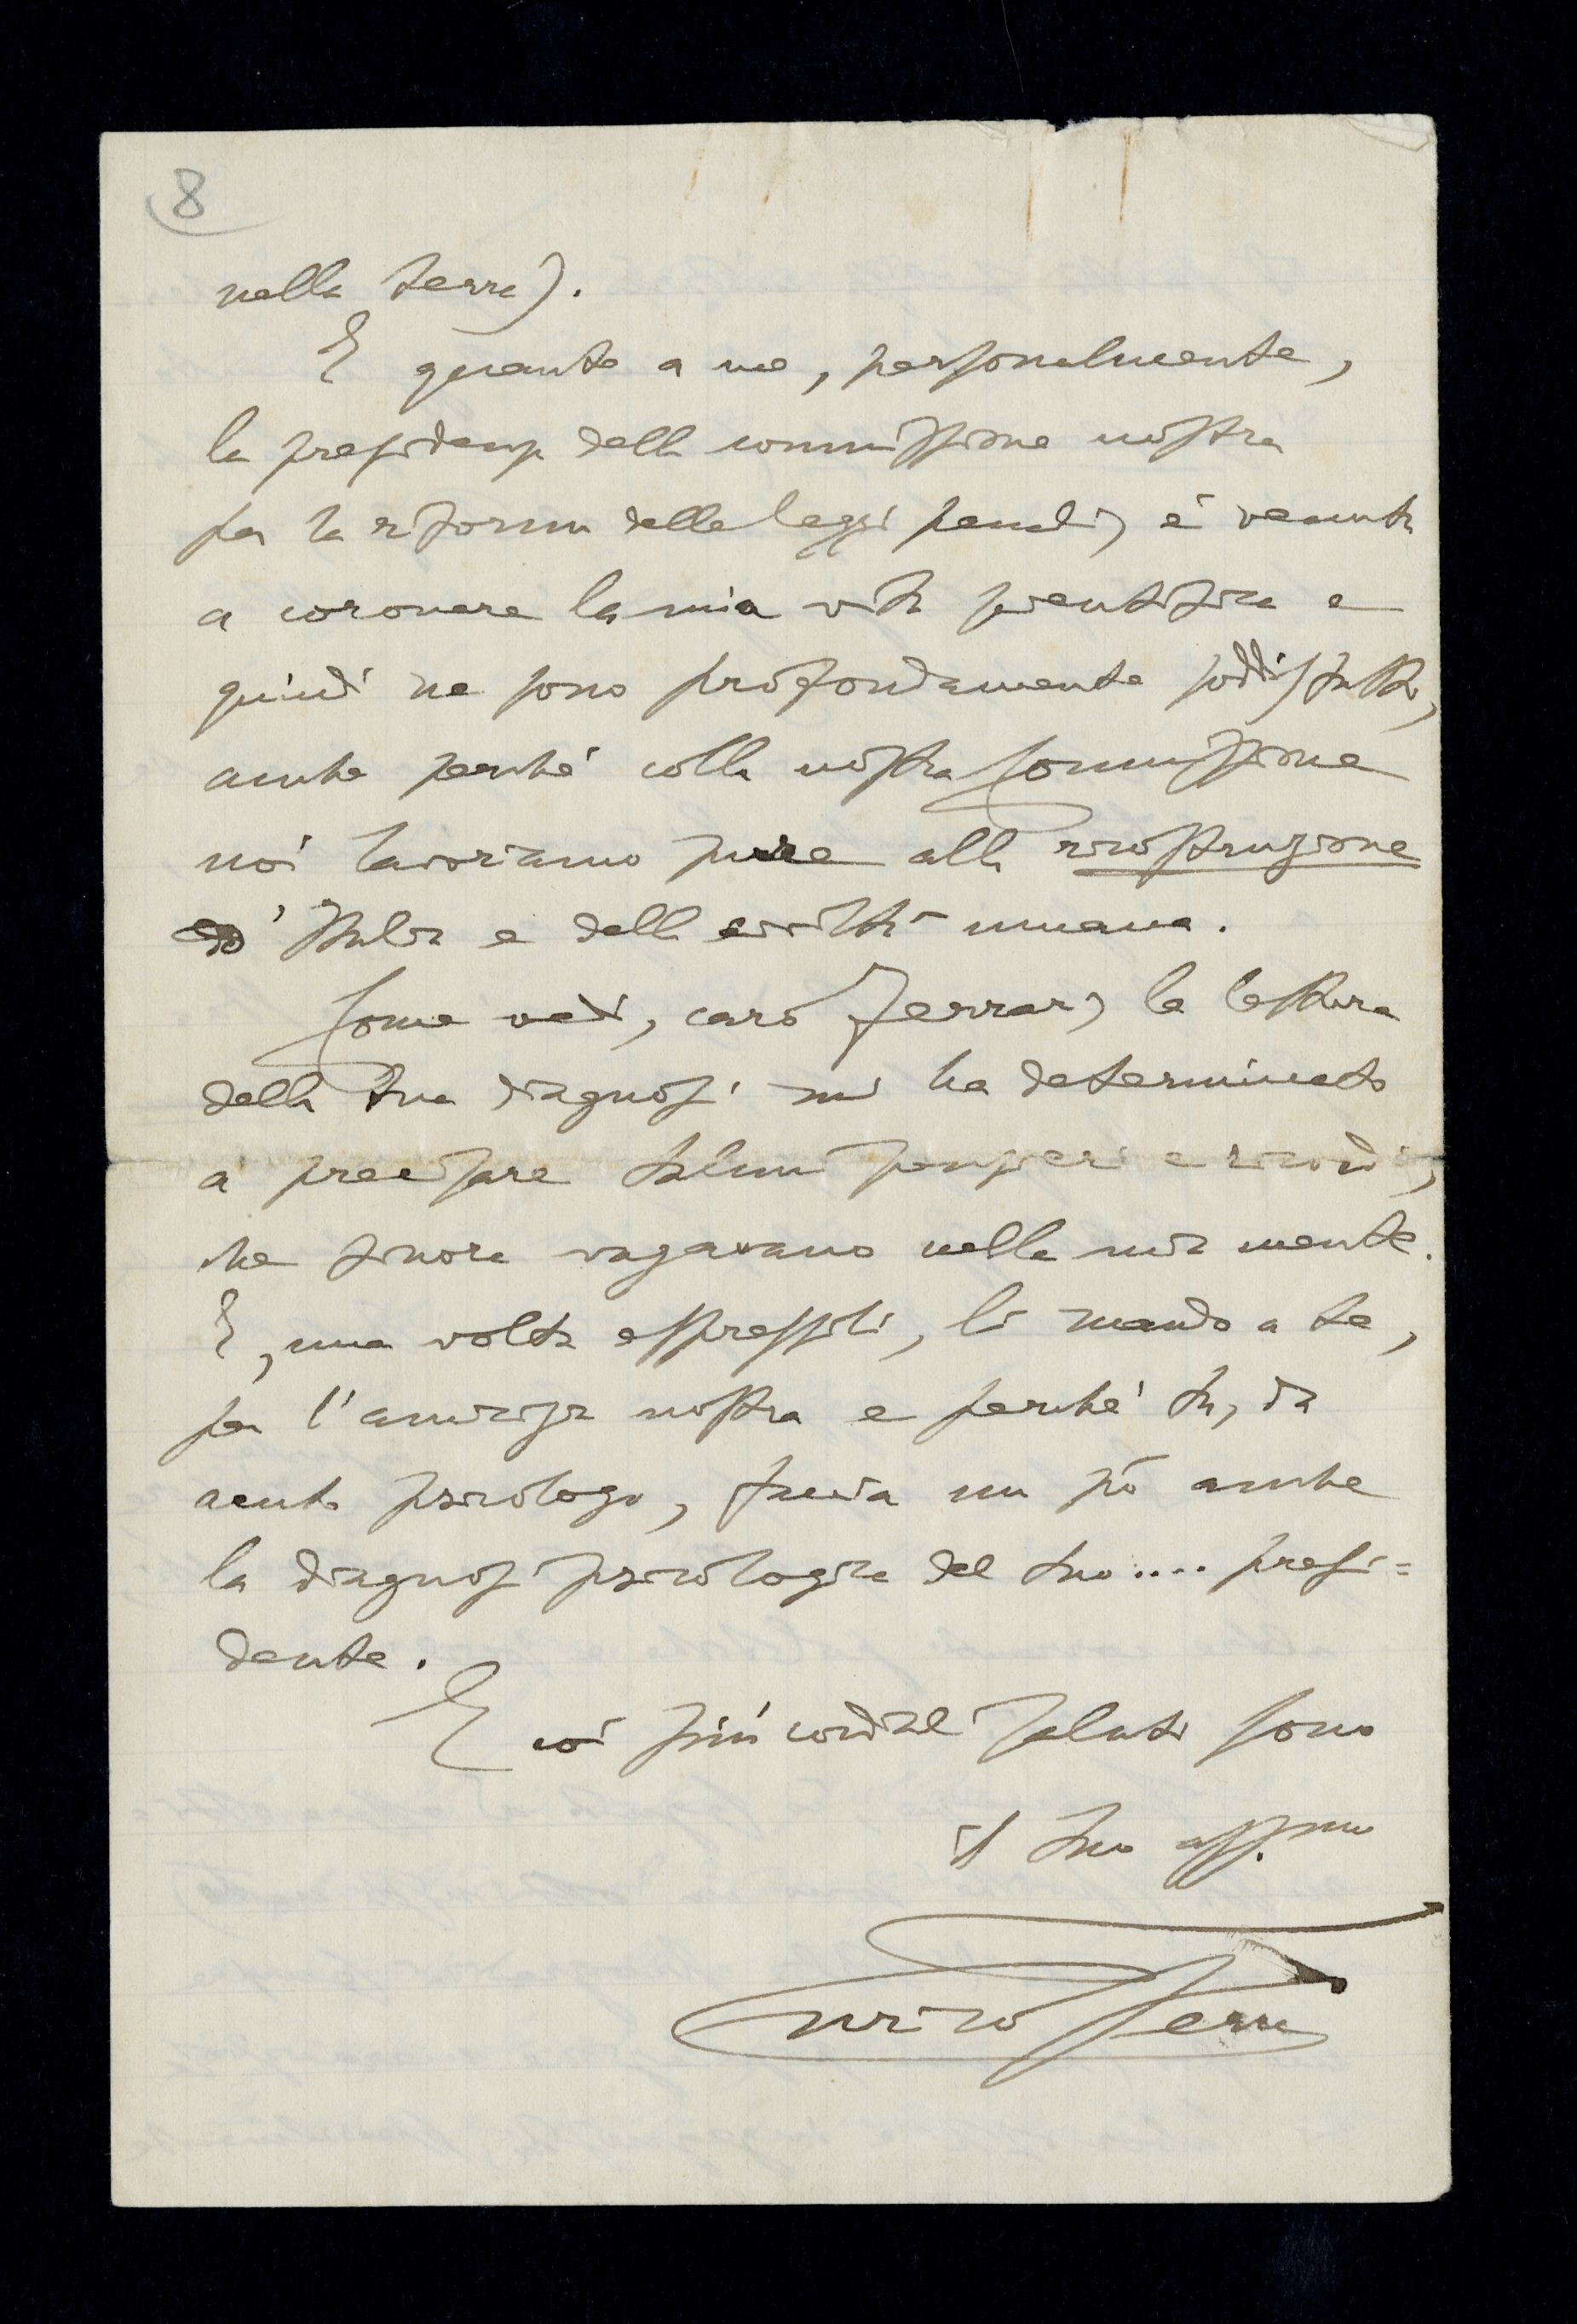 8
nella terra).
E quanto a me, personalmente,
la presidenza della commissione nostra
per la riforma delle leggi penali, è venuta
a coronare la mia vita scientifica e
quindi ne sono profondamente soddisfatto,
anche perché colla nostra Commissione
noi lavoriamo pure alla ricostruzione
d'Italia e della civiltà umana.
Come vedi, caro Ferrari, la lettura
della tua diagnosi mi ha determinato
a precisare taluni pensieri e ricordi,
che finora vagavano nella mia mente.
E, una volta espressili, li mando a te,
per l'amicizia nostra e perché tu, da
acuto psicologo, faccia un pò anche
la diagnosi psicologica del tuo.... presi=
dente.
E coi più cordiali saluti sono
il tuo aff.mo
Enrico Ferri